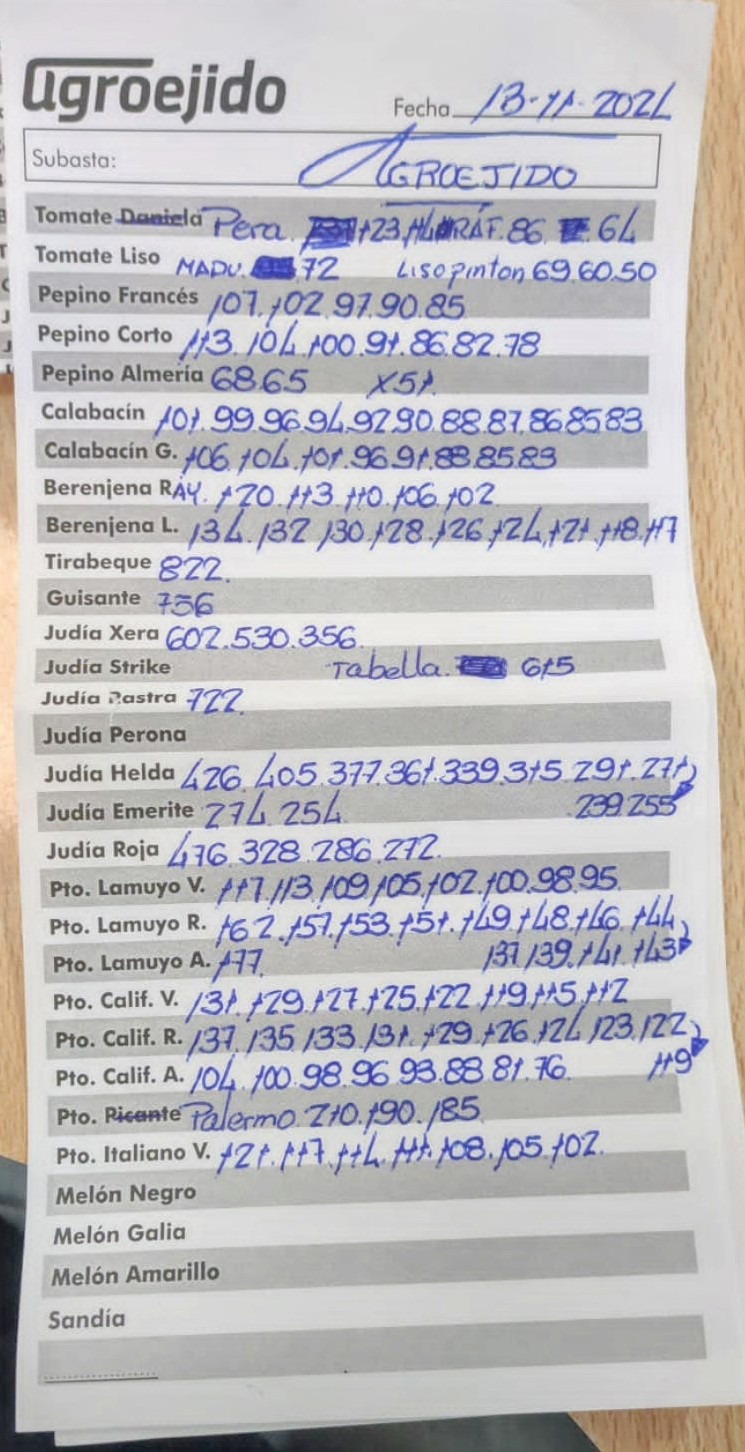 agroejido
Fecha 13-11-2024
Subasta: AGROEJIDO
Tomate Daniela Pera. 123.114 RAF. 86. 64
Tomate Liso MADU. 72 Liso pinton 69.60.50
Pepino Francés 107.102.97.90.85
Pepino Corto 113.104.100.91.86.82.78
Pepino Almería 68.65 X51.
Calabacín 101.99.96.94.92.90.88.87.86.85.83
Calabacín G. 106.104.101.96.91.88.85.83
Berenjena RAY. 120.113.110.106.102
Berenjena L. 134.132.130.128.126.124.121.118.117
Tirabeque 822.
Guisante 756
Judía Xera 602.530.356.
Judía Strike Tabella. 615
Judía Rastra 722.
Judía Perona
Judía Helda 426.405.377.361.339.315.291.271
Judía Emerite 274.254. 239.255
Judía Roja 476.328.286.272.
Pto. Lamuyo V. 117.113.109.105.102.100.98.95.
Pto. Lamuyo R. 162.157.153.151.149.148.146.144
Pto. Lamuyo A. 177. 137.139.141.143
Pto. Calif. V. 131.129.127.125.122.119.115.112
Pto. Calif. R. 137.135.133.131.129.126.124.123.122
Pto. Calif. A. 104.100.98.96.93.88.81.76. 119
Pto. Picante Palermo.210.190.185
Pto. Italiano V. 121.117.114.111.108.105.102.
Melón Negro
Melón Galia
Melón Amarillo
Sandía